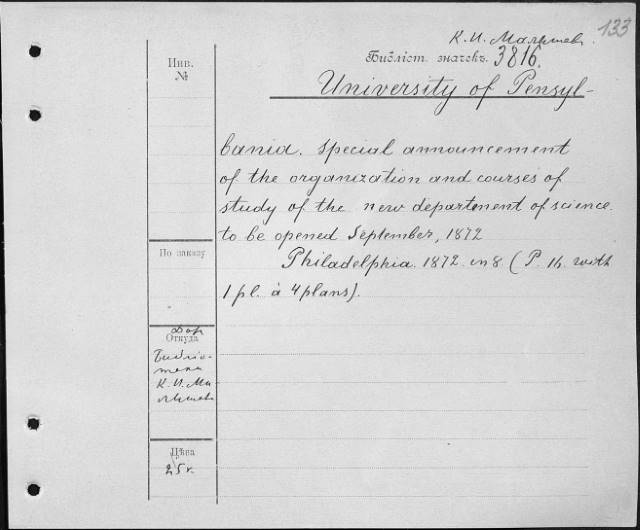 133
К. И. Малышев.
Библіот. значекъ. 3816.
Инв.
№
University of Pensyl-
vania. Special announcement
of the organization and courses of
study of the new departenent of science.
to be opened September, 1872
Philadelphia. 1872. in 8. (P. 16. with
1 pl. à 4 plans).
По заказу
Дар
Откуда
Библіо-
тека
К. И. Ма-
лышева
Цѣна
25 к.